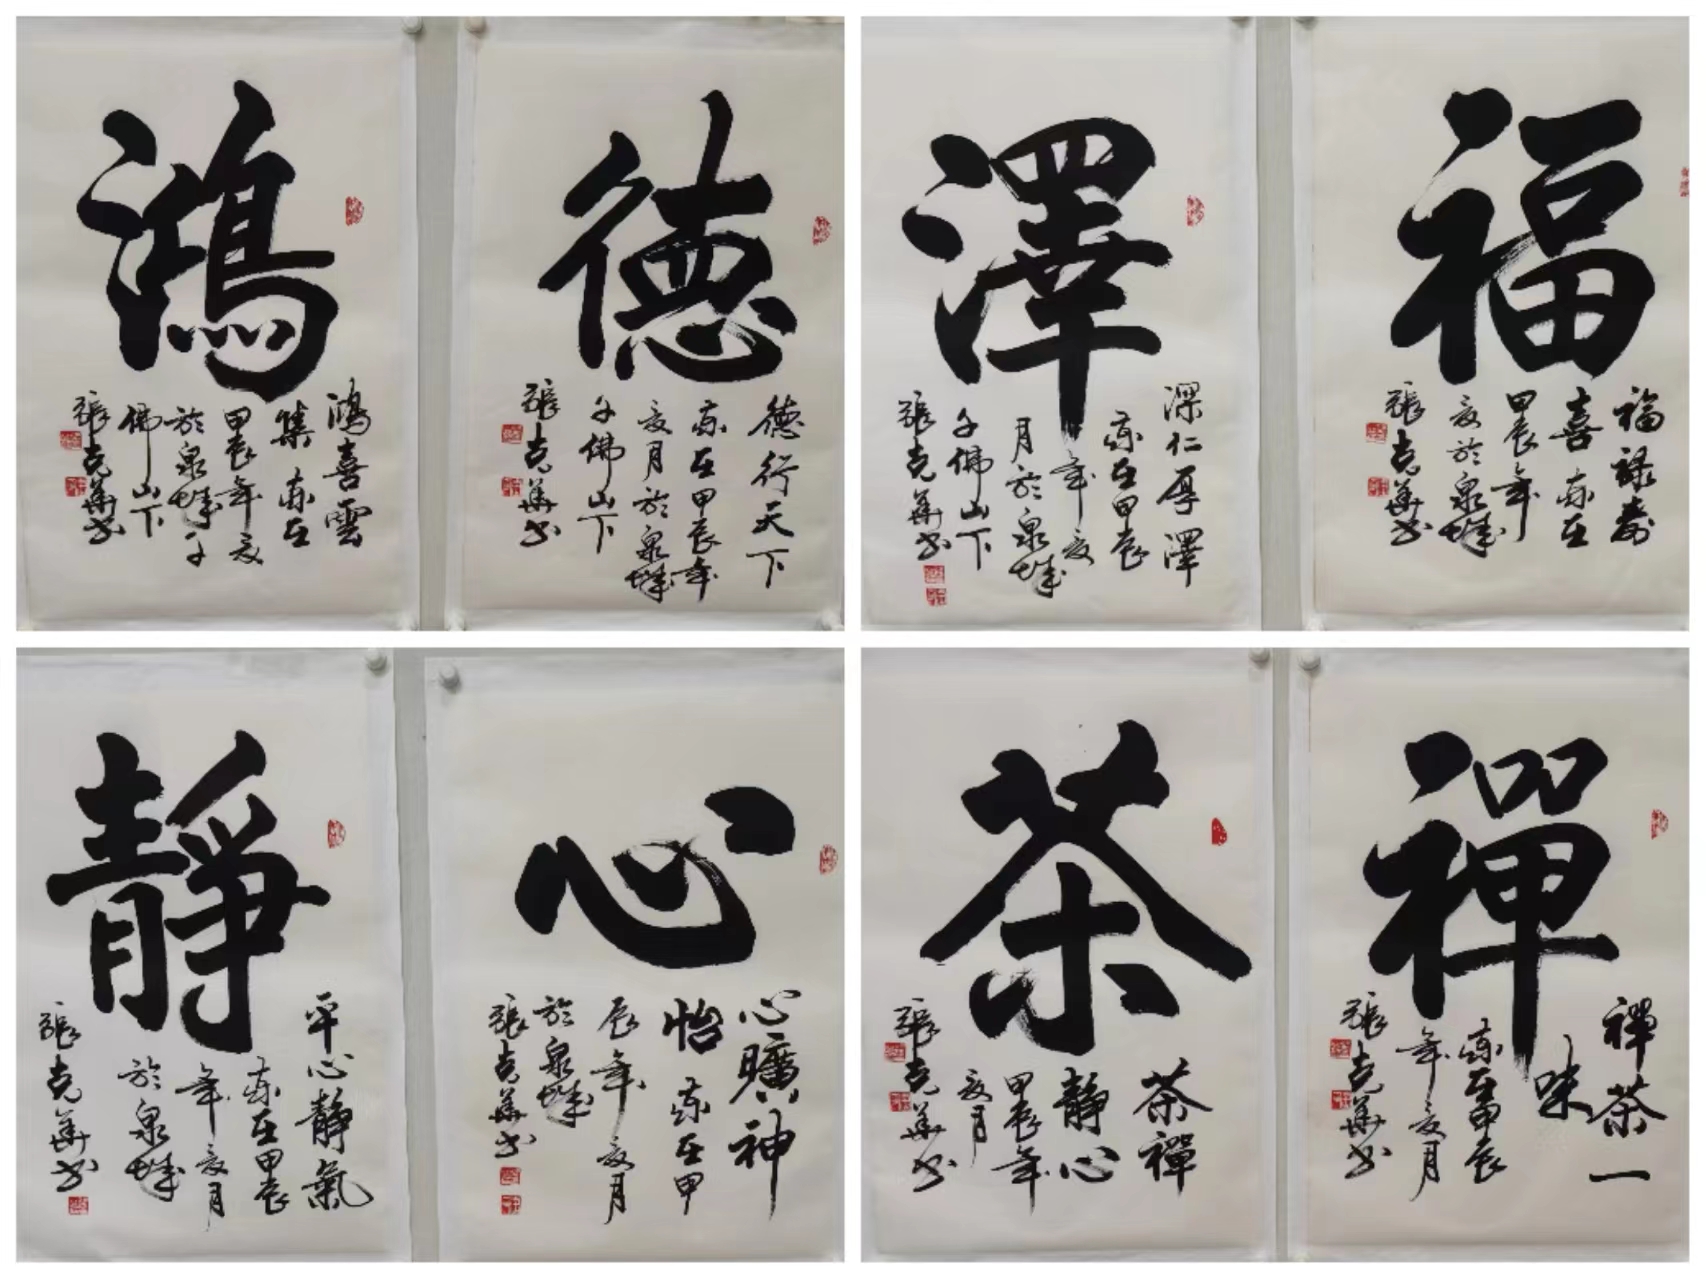 鴻
鴻喜雲
集 歲在
甲辰年亥
於泉城千
佛山下
張克華书
德
德行天下
歲在甲辰年
亥月於泉城
千佛山下
張克華书
澤
深仁厚澤
歲在甲辰
年亥
月於泉城
千佛山下
張克華书
福
福祿壽
喜 歲在
甲辰年
亥於泉城
張克華书
靜
平心靜氣
歲在甲辰
年亥月
於泉城
張克華书
心
心曠神
怡 歲在甲
辰年亥月
於泉城
張克華书
茶
茶禪
靜心
甲辰年
亥月
張克華书
禪
禪茶一
味
歲在甲辰
年亥月
張克華书